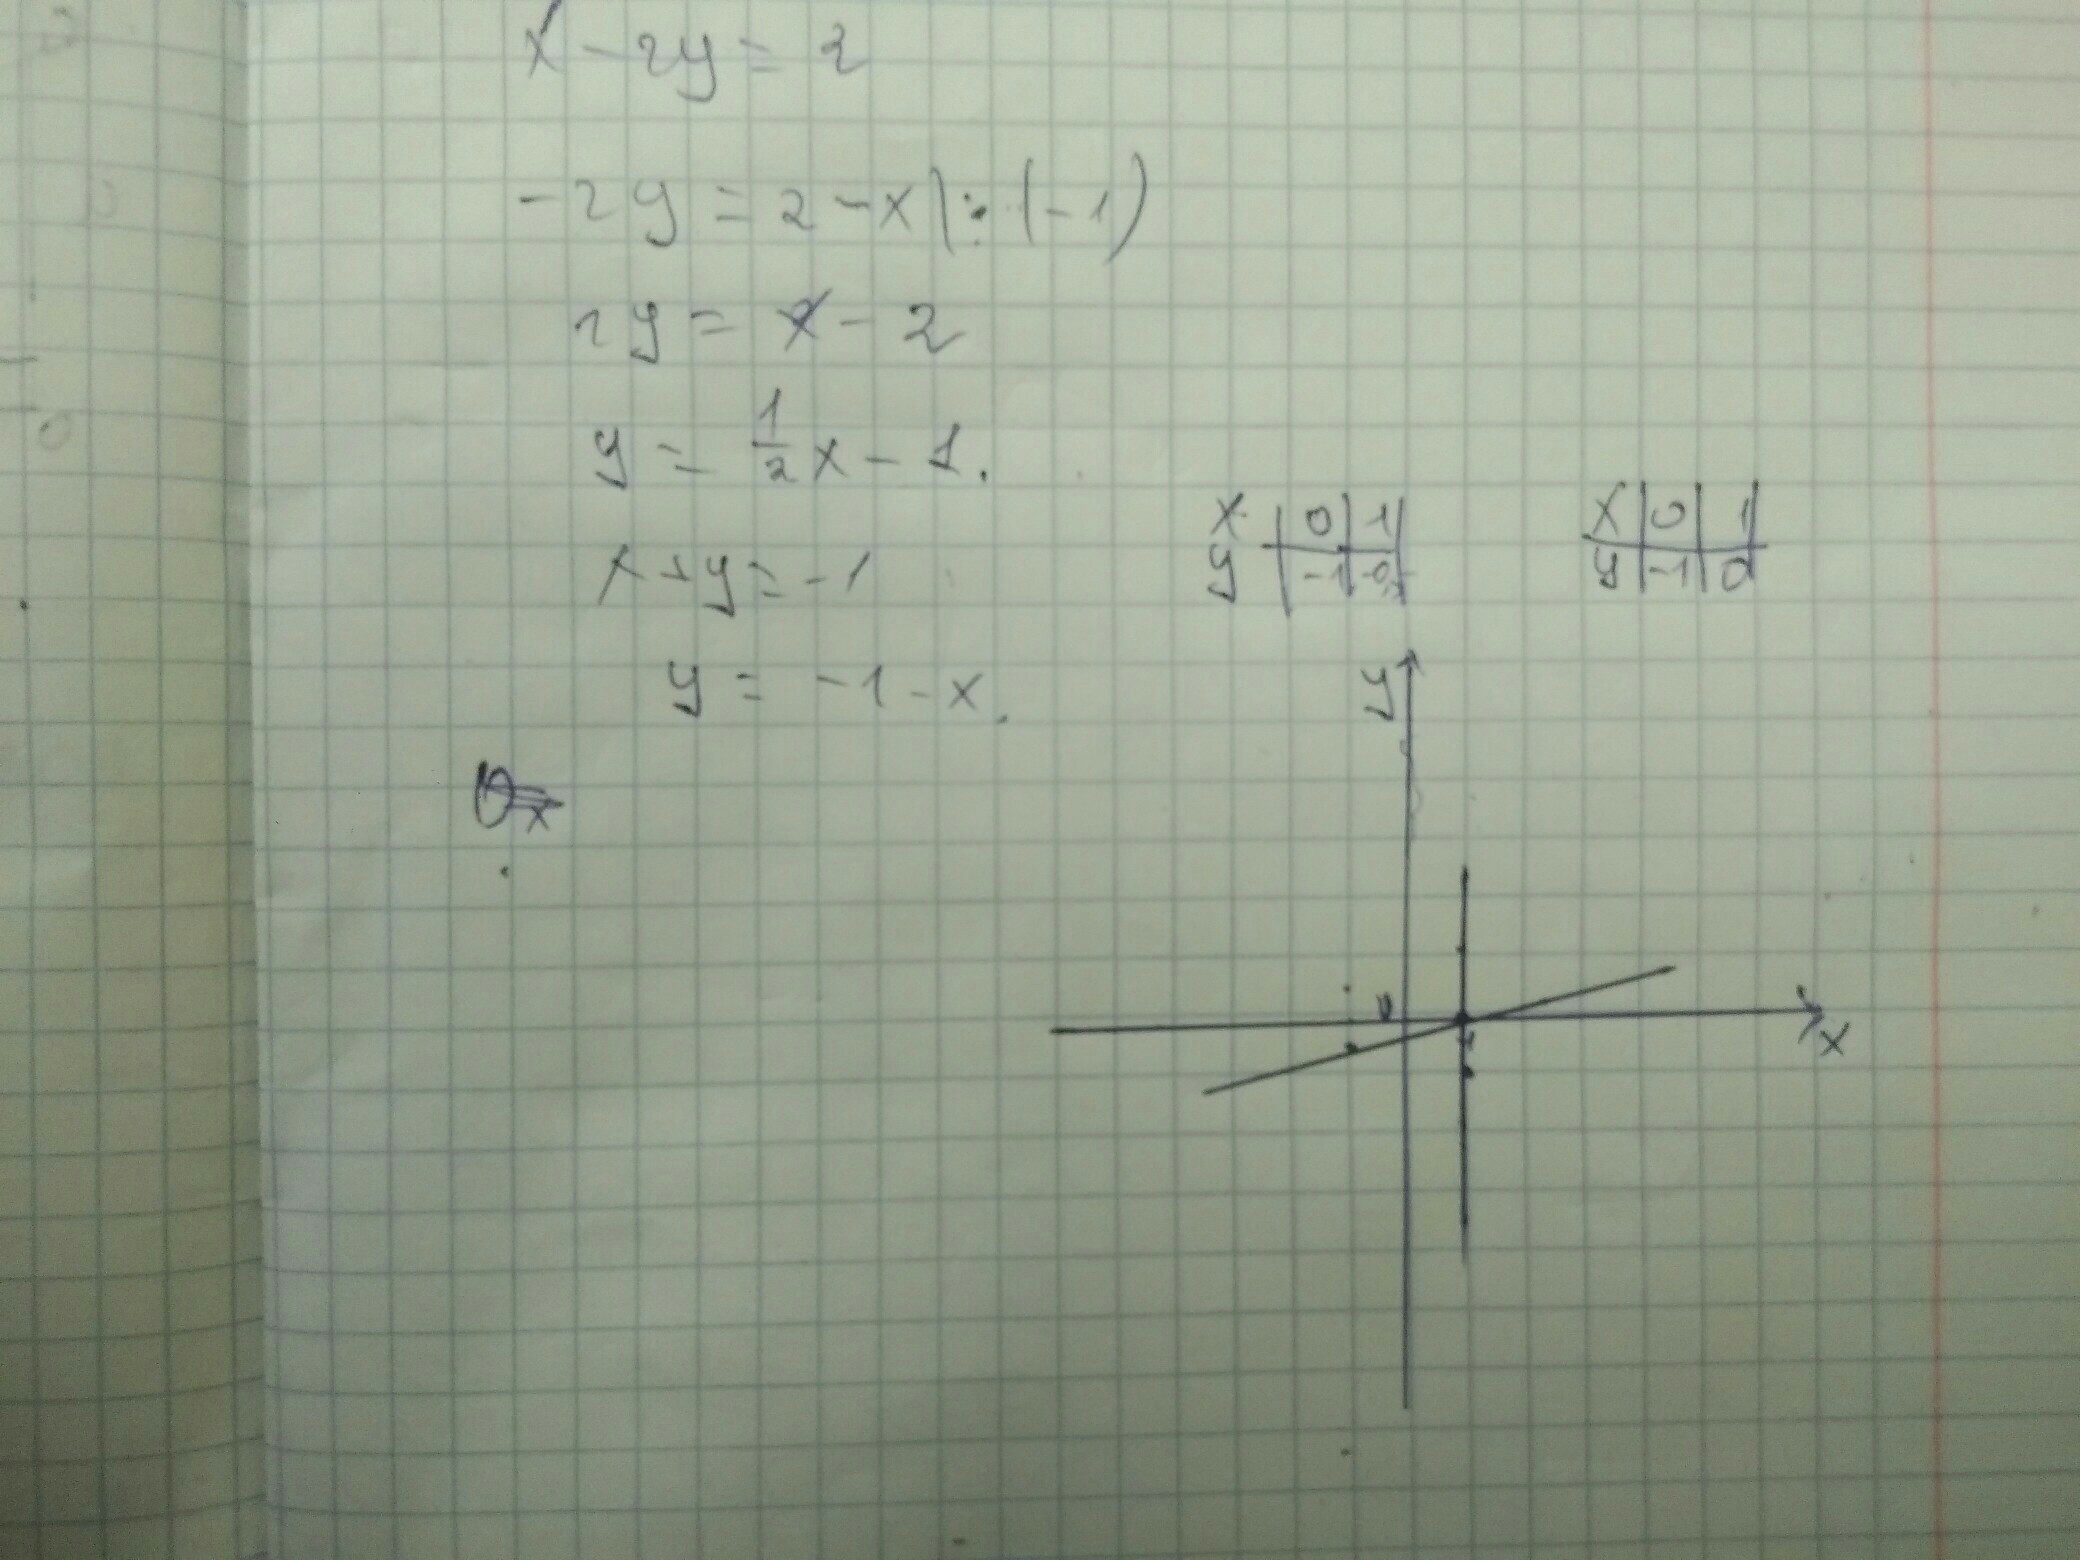 x - 2y = 2
-2y = 2 - x | : (-1)
2y = x - 2
y = 1/2 x - 1.
x + y = -1
y = -1 - x.
x | 0 | 1
y | -1 | -0,5
x | 0 | 1
y | -1 | 0
y
0
x